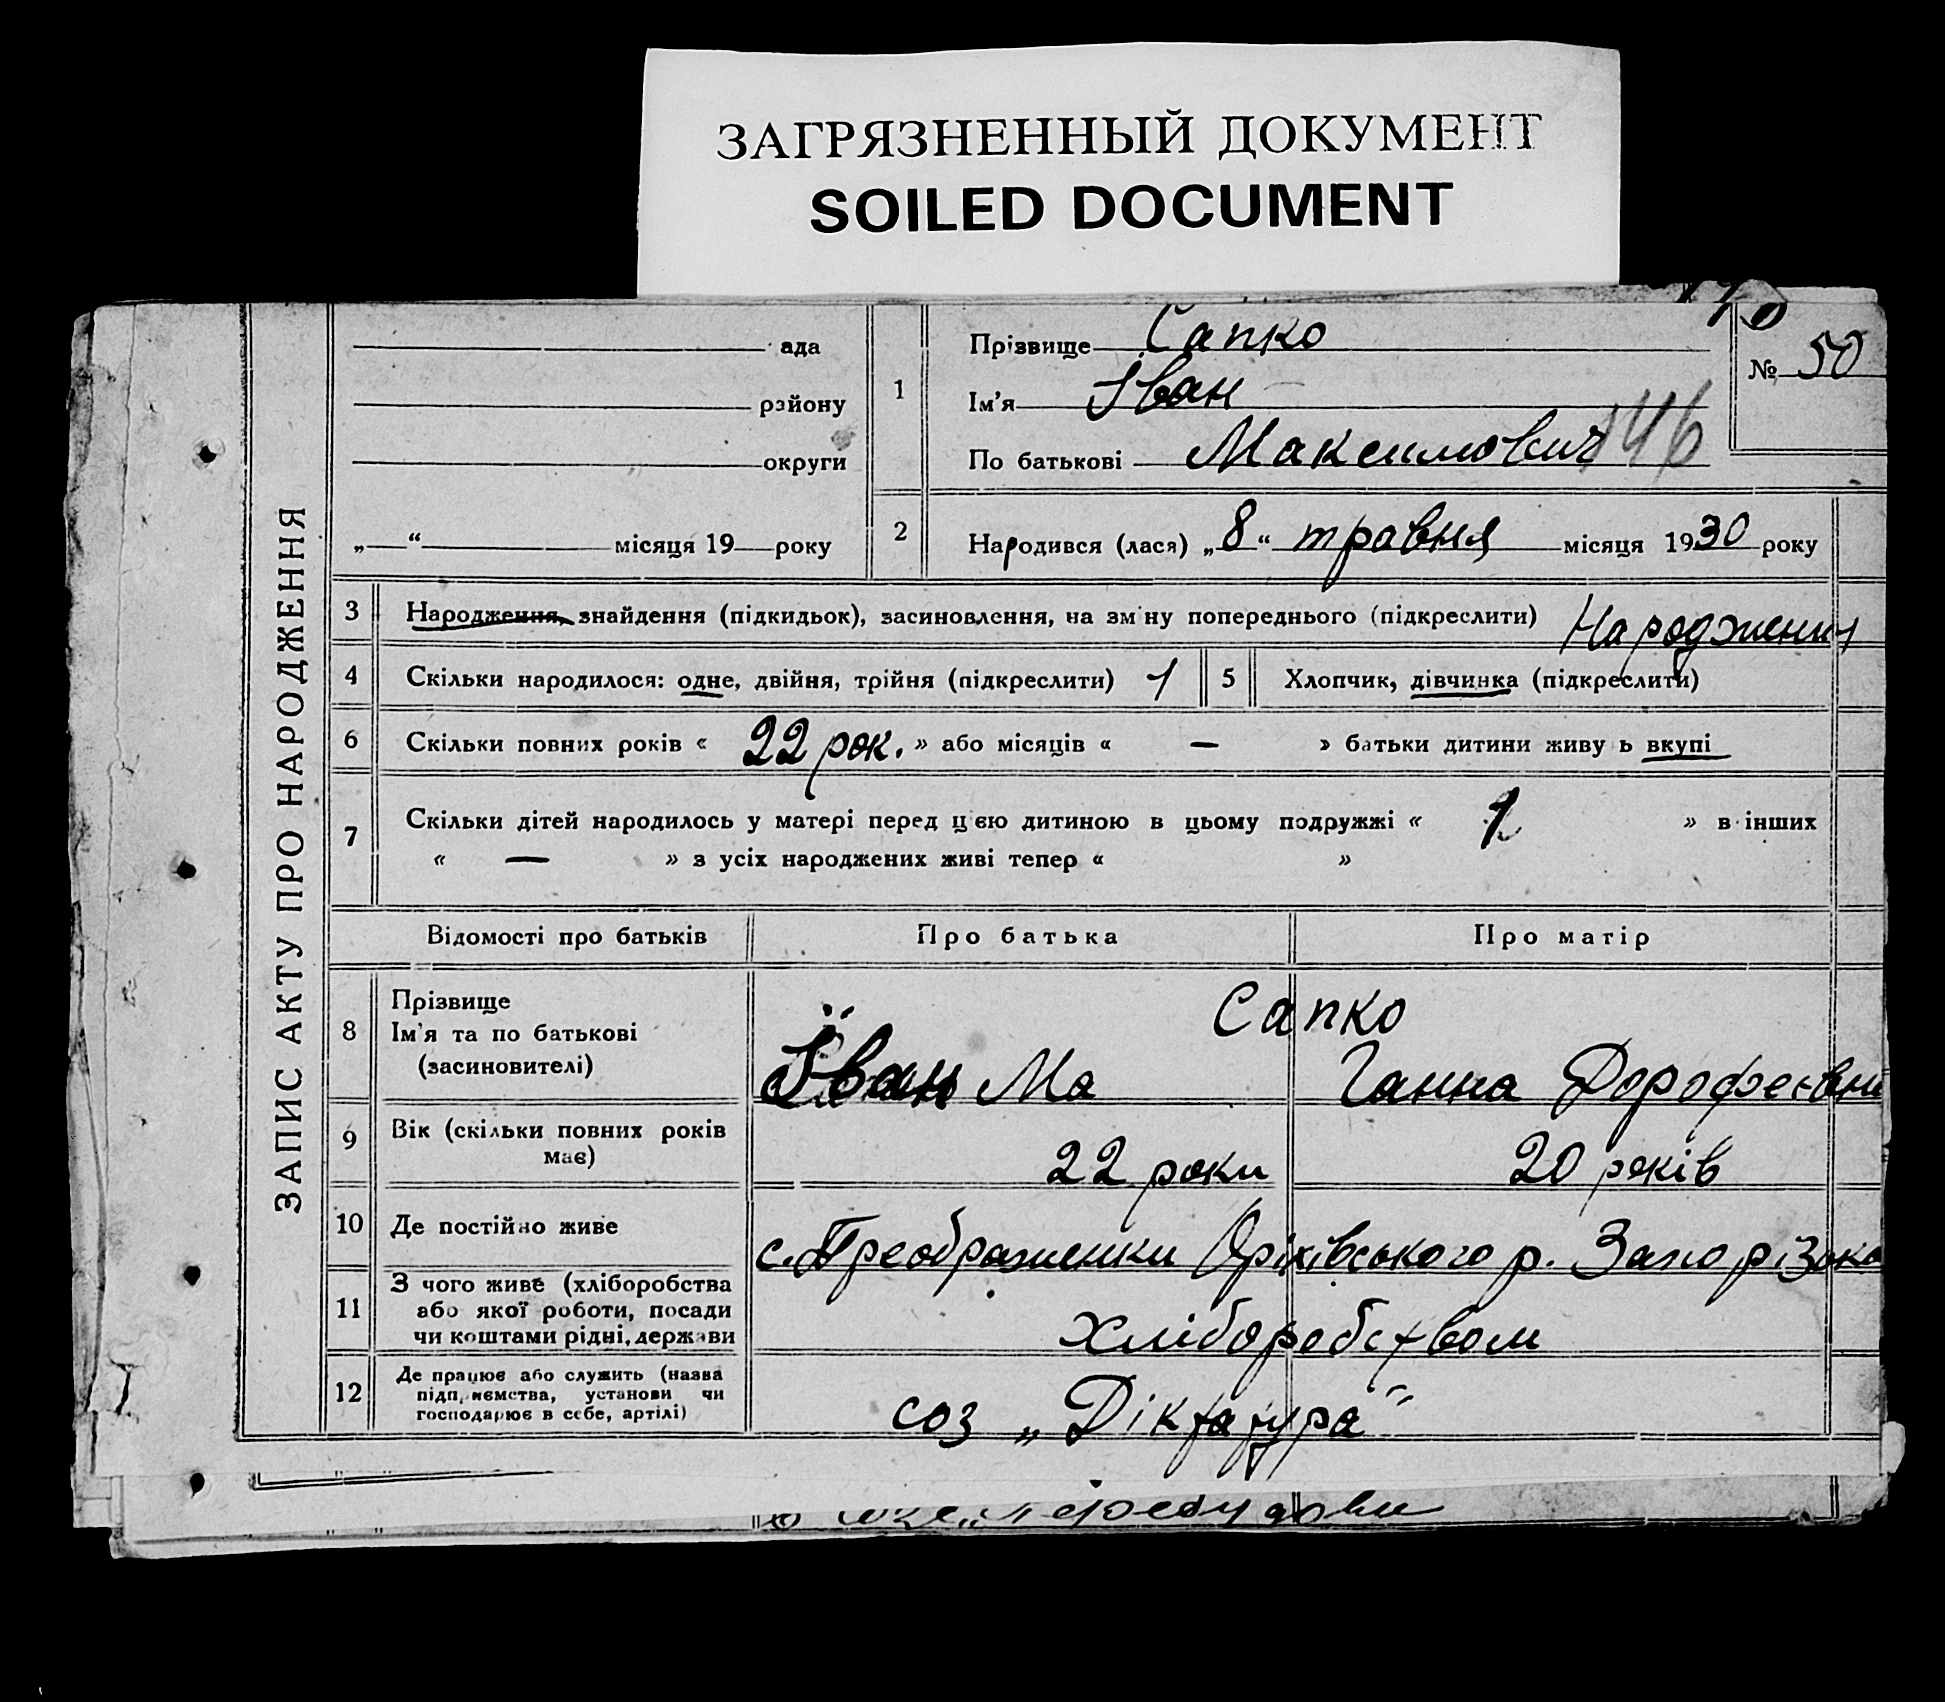 ЗАГРЯЗНЕННЫЙ ДОКУМЕНТ
SOILED DOCUMENT
ЗАПИС АКТУ ПРО НАРОДЖЕННЯ
ада
району
округи
„ “ місяця 19 року
1
Прізвище Сапко
Ім'я Іван
По батькові Максимович
146
№ 50
2
Народився (лася) „8“ травня місяця 1930 року
3 Народження, знайдення (підкидьок), засиновлення, на зміну попереднього (підкреслити) Народження
4 Скільки народилося: одне, двійня, трійня (підкреслити) 1 5 Хлопчик, дівчинка (підкреслити)
6 Скільки повних років « 22 рок. » або місяців « — » батьки дитини живуть вкупі
7 Скільки дітей народилось у матері перед цією дитиною в цьому подружжі « 1 » в інших
« — » з усіх народжених живі тепер « »
Відомості про батьків Про батька Про матір
8 Прізвище
Ім'я та по батькові
(засиновителі)
Сапко
Іван Ма Ганна Дорофеевни
9 Вік (скільки повних років
має)
22 роки 20 років
10 Де постійно живе
с. Преображенки Оріхівського р. Запорізько
11 З чого живе (хліборобства
або якої роботи, посади
чи коштами рідні, держави
хліборобством
12 Де працює або служить (назва
підприємства, установи чи
господарює в себе, артілі)
соз „Діктатура“